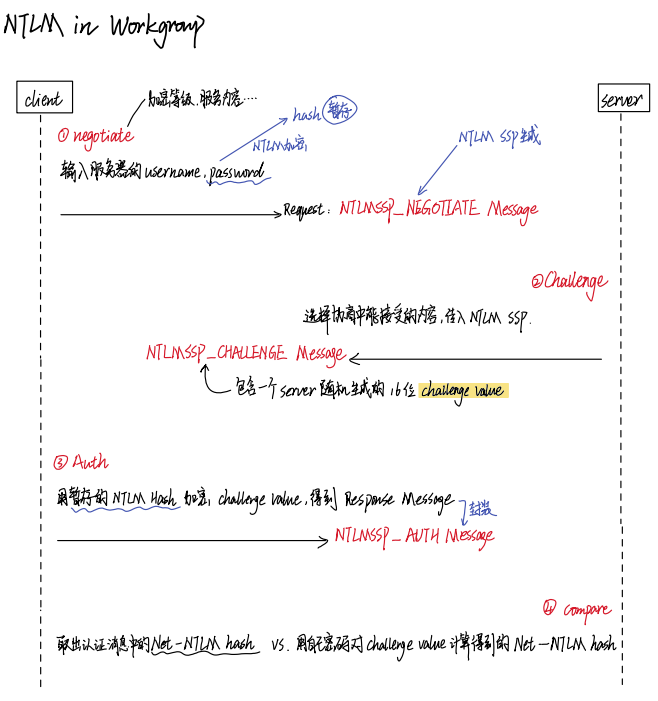 NTLM in Workgroup
client
server
加密等级、服务内容……
hash 暂存
① negotiate
NTLM加密
NTLM SSP生成
输入服务器的username、password
Request: NTLMSSP_NEGOTIATE Message
② Challenge
选择协商中能接受的内容,传入 NTLM SSP.
NTLMSSP_CHALLENGE Message
包含一个server随机生成的16位 challenge value
③ Auth
用暂存的 NTLM Hash 加密 challenge value,得到 Response Message
封装
NTLMSSP_AUTH Message
④ compare
取出认证消息中的Net-NTLM hash vs. 用自己密码对challenge value计算得到的 Net-NTLM hash